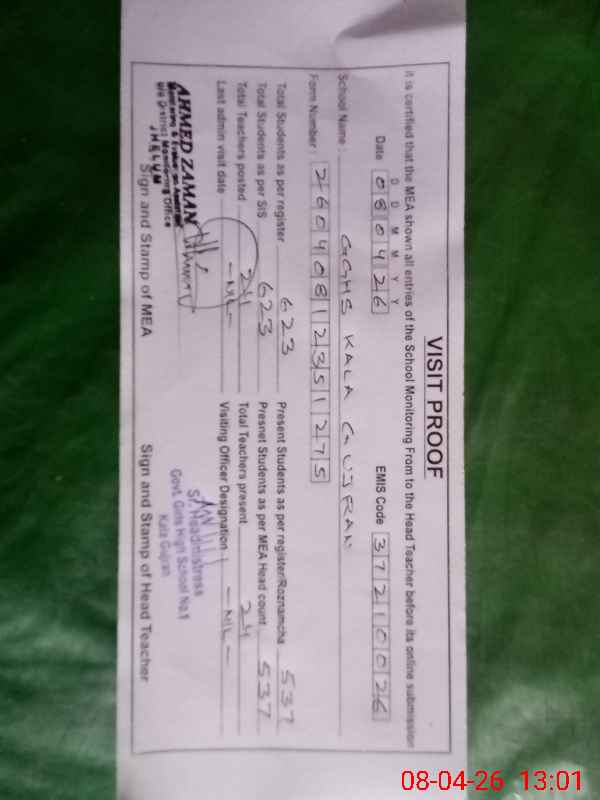 VISIT PROOF
it is certified that the MEA shown all entries of the School Monitoring From to the Head Teacher before its online submission
D D M M Y Y
Date 080426 EMIS Code 37210026
School Name : GGHS KALA GUJRAN
Form Number : 26040812351275
Total Students as per register 623 Present Students as per register/Roznamcha 537
Total Students as per SIS 623 Presnet Students as per MEA Head count 537
Total Teachers posted 24 Total Teachers present 24
Last admin visit date -NIL- Visiting Officer Designation -NIL-
AHMED ZAMAN
Monitoring & Evaluation Assistant
District Monitoring Office
JHELUM
Sign and Stamp of MEA
Sr. Headmistress
Govt. Girls High School No.1
Kala Gujran
Sign and Stamp of Head Teacher
08-04-26 13:01